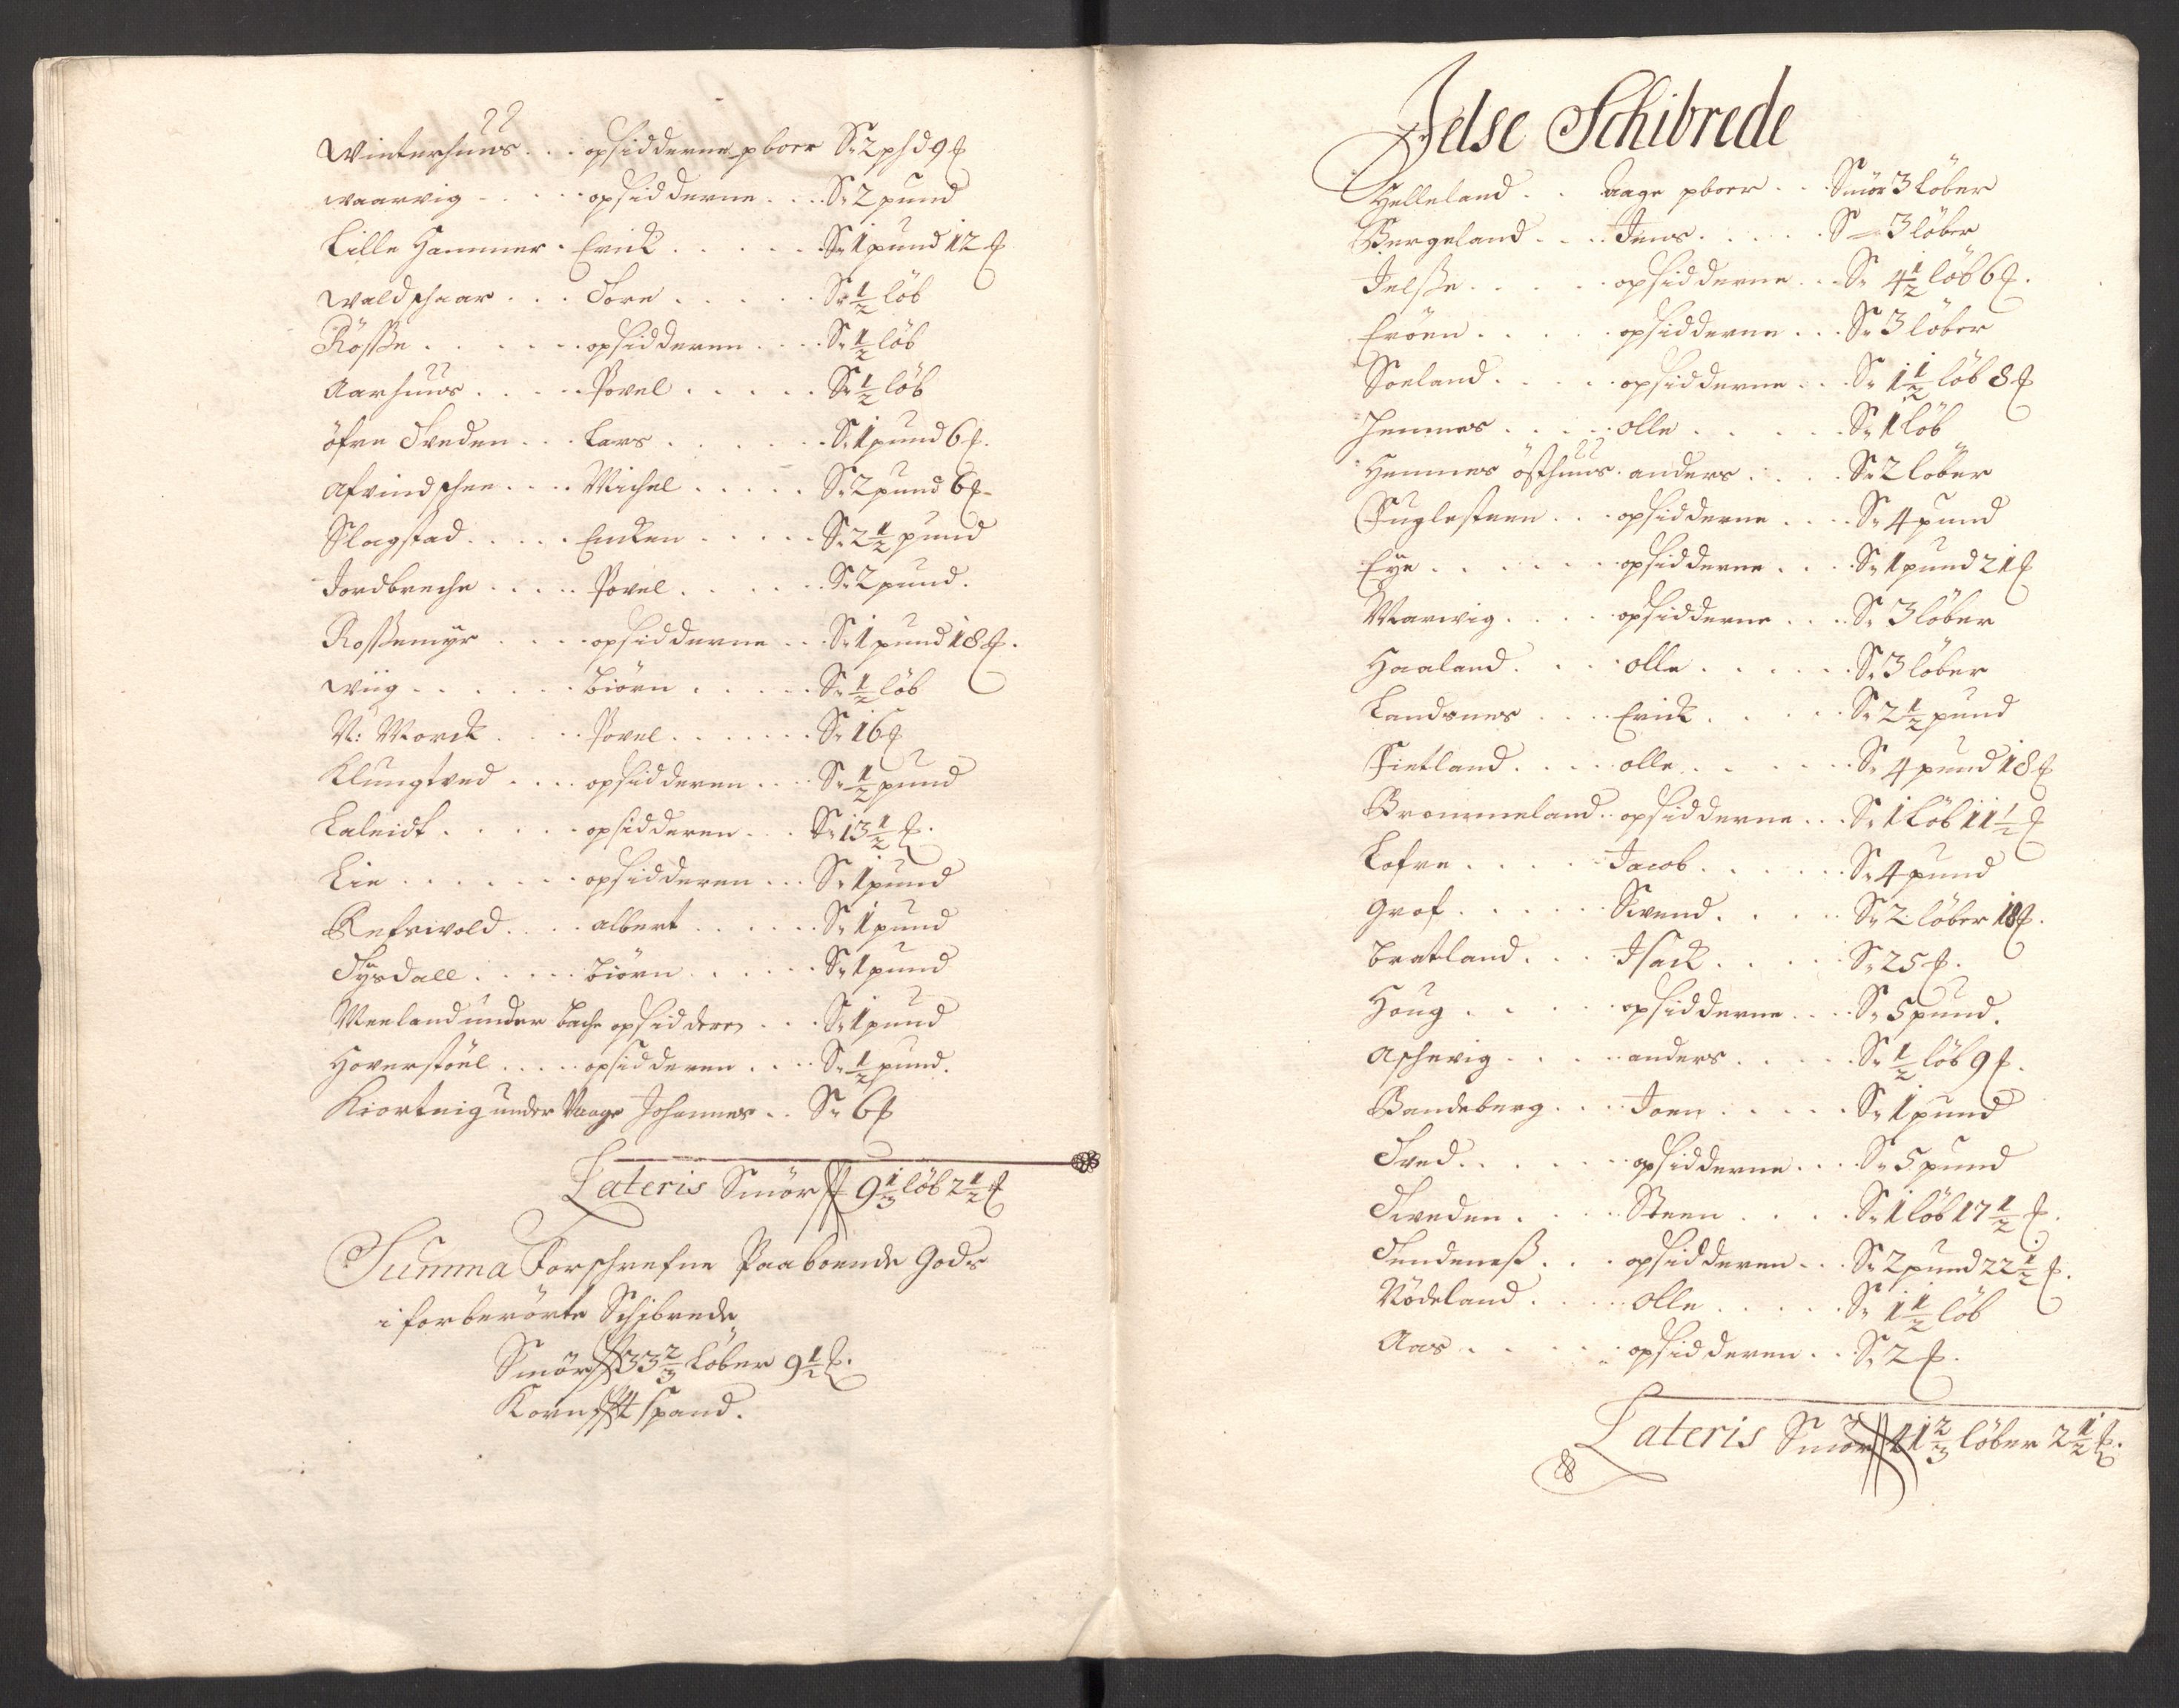 Winterhuus . . . opsidderne pboer S: 2 phd 9 ℔
waarvig . . . . opsidderne . . . S: 2 pund
Lille Hammer . Erick . . . . . S: 1 pund 12 ℔
waldschaar . . . Tore . . . . . S: 1/2 löb
Rösse . . . . . . opsidderen . . . S: 1/2 löb
Aarhuus . . . . Povel . . . . . S: 1/2 löb
öfre Tveden . . . Lars . . . . . S: 1 pund 6 ℔.
Afvindschee . . . . Michel . . . . . S: 2 pund 6 ℔
Slagstad . . . . . Encken . . . . . S: 2 1/2 pund
Jordbreche . . . . . Povel . . . . . S: 2 pund.
Rossemyr . . . . opsidderne . . S: 1 pund 18 ℔.
wiig . . . . . . Biörn . . . . . S: 1/2 löb
N: Morck . . . . Povel . . . . . S: 16 ℔
Klungtved . . . . opsidderen . . . S: 1/2 pund
Laleidt . . . . . opsidderen . . . S: 13 1/2 ℔.
Lie . . . . . . opsidderen . . . S: 1 pund
Refsvold . . . . albert . . . . . S: 1 pund
Tysdall . . . . . Biörn . . . . . S: 1 pund
Meeland under Bache opsidderen . . . S: 1 pund
Hoverstöel . . . . . opsidderen . . . S: 1/2 pund.
Kiorteig under Vaage Johannes . . S: 6 ℔
Lateris Smör 9 1/3 löb 2 1/2 ℔
Summa Forschrefne Paaboende Gods
i forberörte Schibrede
Smör 33 2/3 Löber 9 1/2 ℔.
Korn 4 spand.
Jelse Schibrede
Helleland . . Aage pboer . . Smör 3 Löber
Bergeland . . . Jens . . . . . S 3 löber
Jelsse . . . . . opsidderne . . S: 4 1/2 löb 6 ℔.
Eröen . . . . . opsidderne . . . S: 3 löber
Soeland . . . . . opsidderne . . . S: 1 1/2 löb 8 ℔
Hemmes . . . . . olle . . . . . S: 1 löb
Hemmes östhuus . anders . . . . S: 2 löber
Fuglesteen . . . opsidderne . . . . S: 4 pund
Eye . . . . . . opsidderne . . . S: 1 pund 21 ℔
Marvig . . . . opsidderne . . . . S: 3 löber
Haaland . . . . olle . . . . . S: 3 löber
Landsnes . . . . Erick . . . . . S: 2 1/2 pund
Fietland . . . . . olle . . . . . S: 4 pund 18 ℔
Brommeland . . opsidderne . . . S: 1 Löb 11 1/2 ℔
Lofre . . . . . Jacob . . . . . S: 4 pund
Grof . . . . . Svend . . . . . S: 2 löber 18 ℔.
Bratland . . . Isack . . . . . S: 25 ℔.
Houg . . . . . opsidderne . . . . S: 5 pund.
Aschevig . . . . . anders . . . . . S: 1/2 löb 9 ℔.
Bandeberg . . . . Joen . . . . . S: 1 pund
Tved . . . . . opsidderne . . . . S: 5 pund
Tveden . . . . . Steen . . . . . S: 1 löb 17 1/2 ℔.
Tendeneß . . . opsidderen . . . S: 2 pund 22 1/2 ℔.
Nödeland . . . . . Olle . . . . . S: 1 1/2 löb
Aas . . . . . . opsidderen . . S: 2 ℔.
Lateris Smör 41 2/3 löber 2 1/2 ℔.